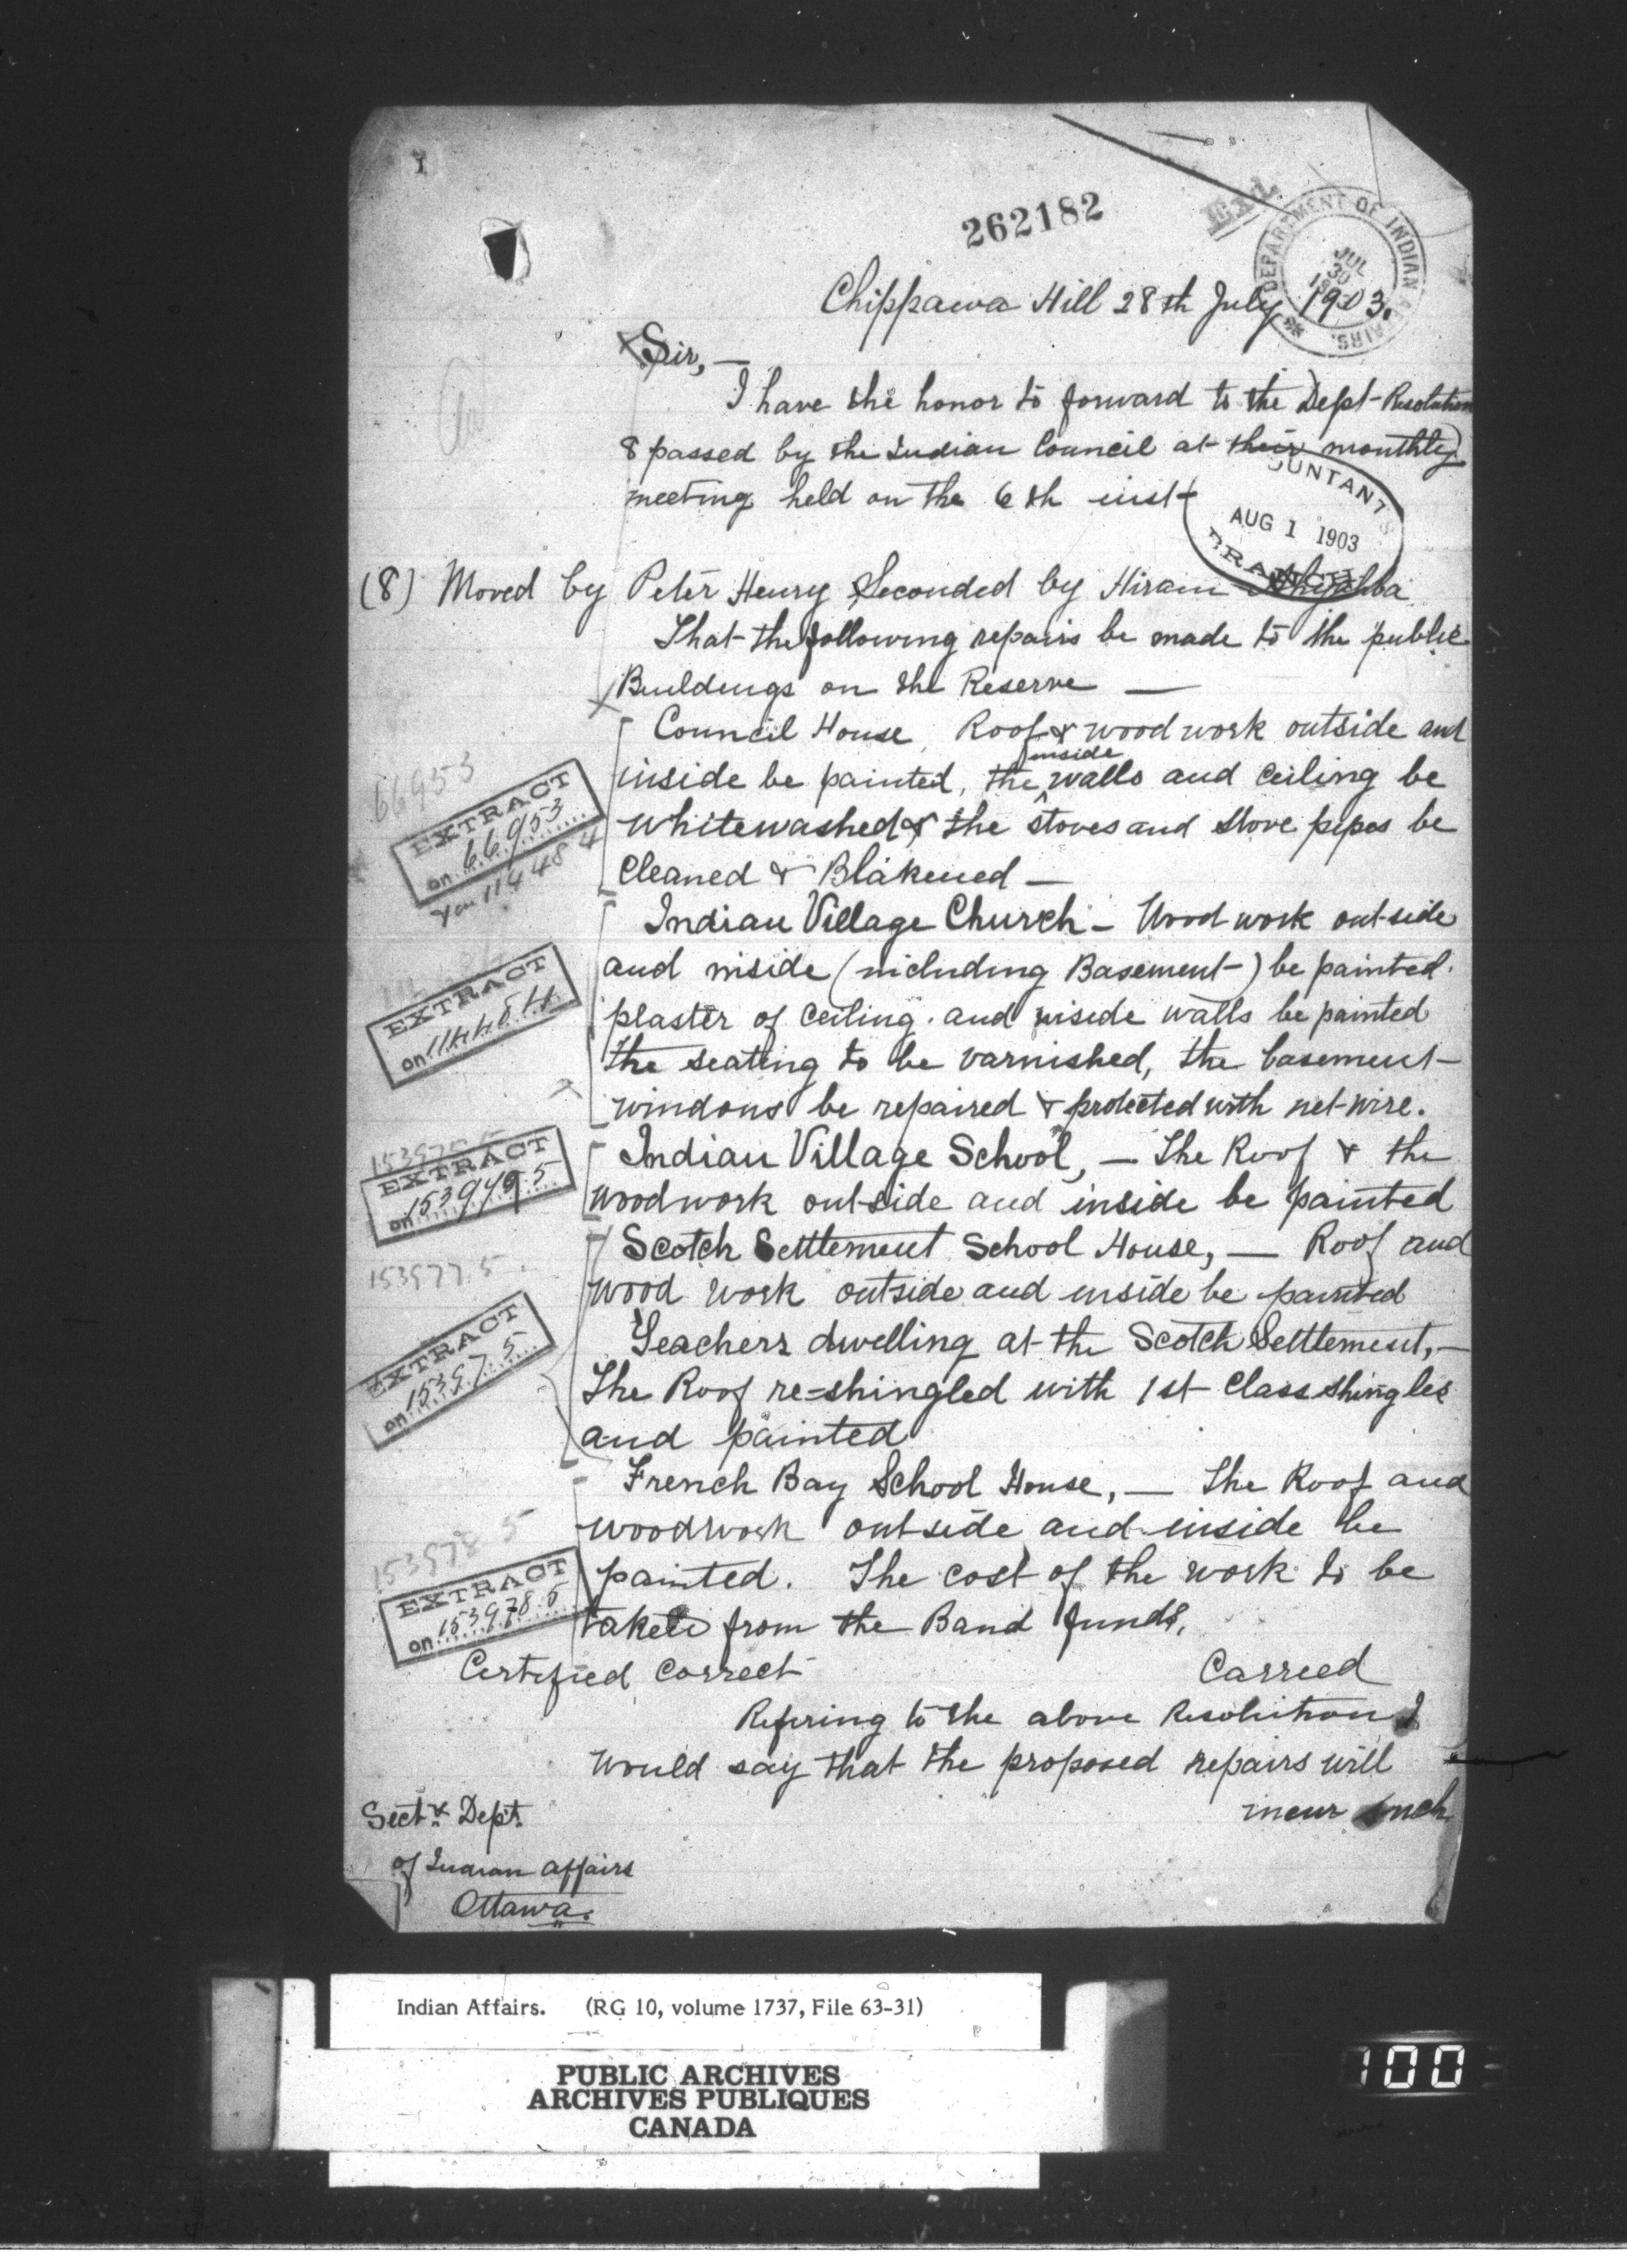 1
262182
DEPARTMENT OF INDIAN AFFAIRS.
JUL 30 1903
Chippawa Hill 28th July 1903.
Sir, —
I have the honor to forward to the Dept Resolution
8 passed by the Indian Council at their monthly
meeting held on the 6th inst
ACCOUNTANT'S BRANCH
AUG 1 1903
(8) Moved by Peter Henry Seconded by Hiram
That the following repairs be made to the public
Buildings on the Reserve —
Council House, Roof & wood work outside and
inside be painted, the inside walls and ceiling be
whitewashed & the stoves and stove pipes be
Cleaned & Blakened —
66953
EXTRACT
on 66953
& on 114484
Indian Village Church — Wood work outside
and inside (including Basement) be painted.
plaster of ceiling. and inside walls be painted
the seating to be varnished, the basement
windows be repaired & protected with net-wire.
EXTRACT
on 114484
Indian Village School, — The Roof & the
woodwork outside and inside be painted
EXTRACT
on
Scotch Settlement School House, — Roof and
wood work outside and inside be painted
Teachers dwelling at the Scotch Settlement, —
The Roof re-shingled with 1st Class shingles
and painted
153977.5
EXTRACT
on 15397 5
French Bay School House, — The Roof and
woodwork outside and inside be
painted. The cost of the work to be
taken from the Band funds.
153978.5
EXTRACT
on 153978.5
Certified Correct Carried
Refering to the above Resolution I
would say that the proposed repairs will
incur such
Secty Dept.
of Indian Affairs
Ottawa.
Indian Affairs. (RG 10, volume 1737, File 63-31)
PUBLIC ARCHIVES
ARCHIVES PUBLIQUES
CANADA
100